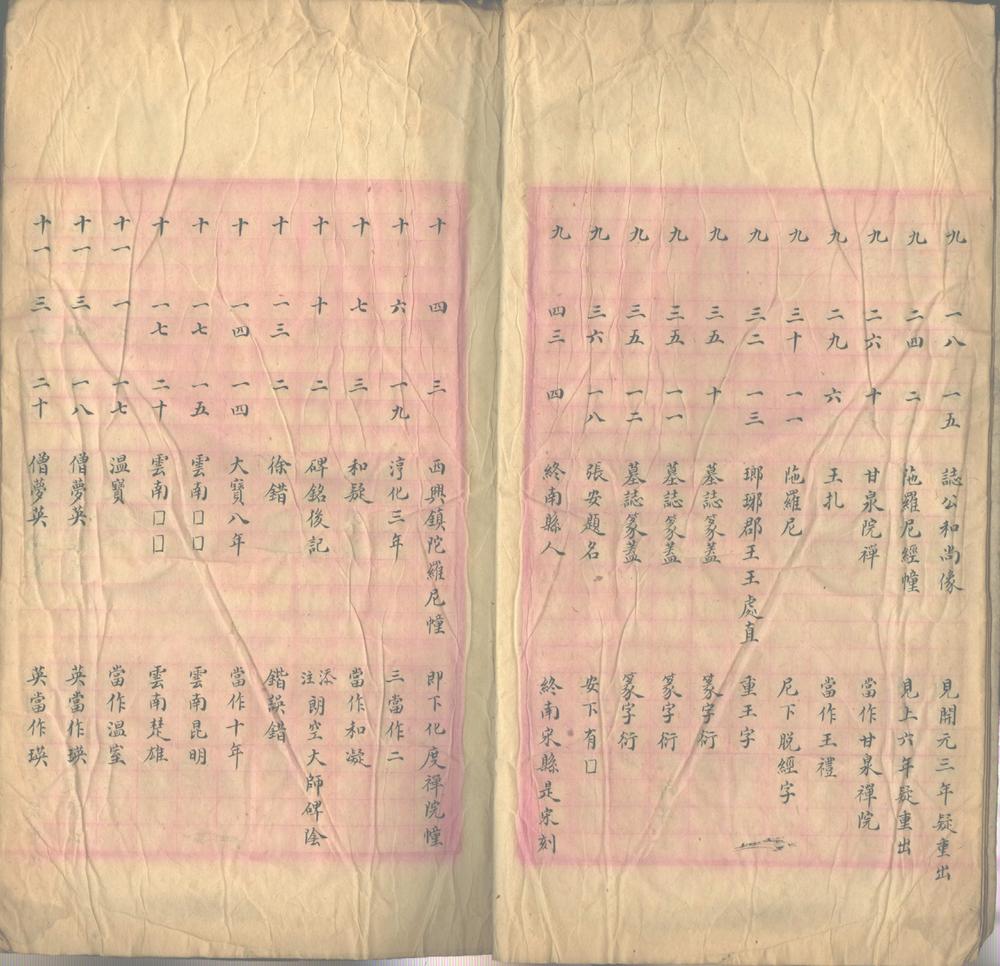 九 一八 一五 誌公和尚像 見開元三年疑重出
九 二四 二 陁羅尼經幢 見上六年疑重出
九 二六 十 甘泉院禪 當作甘泉禪院
九 二九 六 王扎 當作王禮
九 三十 一一 陁羅尼 尼下脱經字
九 三二 一三 瑯琊郡王王處直 重王字
九 三五 十 墓誌篆蓋 篆字衍
九 三五 一一 墓誌篆蓋 篆字衍
九 三五 一二 墓誌篆蓋 篆字衍
九 三六 一八 張安題名 安下有口
九 四三 四 終南縣人 終南宋縣是宋刻
十 四 三 西興鎮陀羅尼幢 即下化度禪院幢
十 六 一九 淳化三年 三當作二
十 七 三 和疑 當作和凝
十 十 二 碑銘後記 添注朗空大師碑陰
十 一三 二 徐錯 鍇誤錯
十 一四 一四 大寶八年 當作十年
十 一七 一五 雲南口口 雲南昆明
十 一七 二十 雲南口口 雲南楚雄
十一 一 一七 溫寶 當作溫室
十一 三 一八 僧夢英 英當作瑛
十一 三 二十 僧夢英 英當作瑛